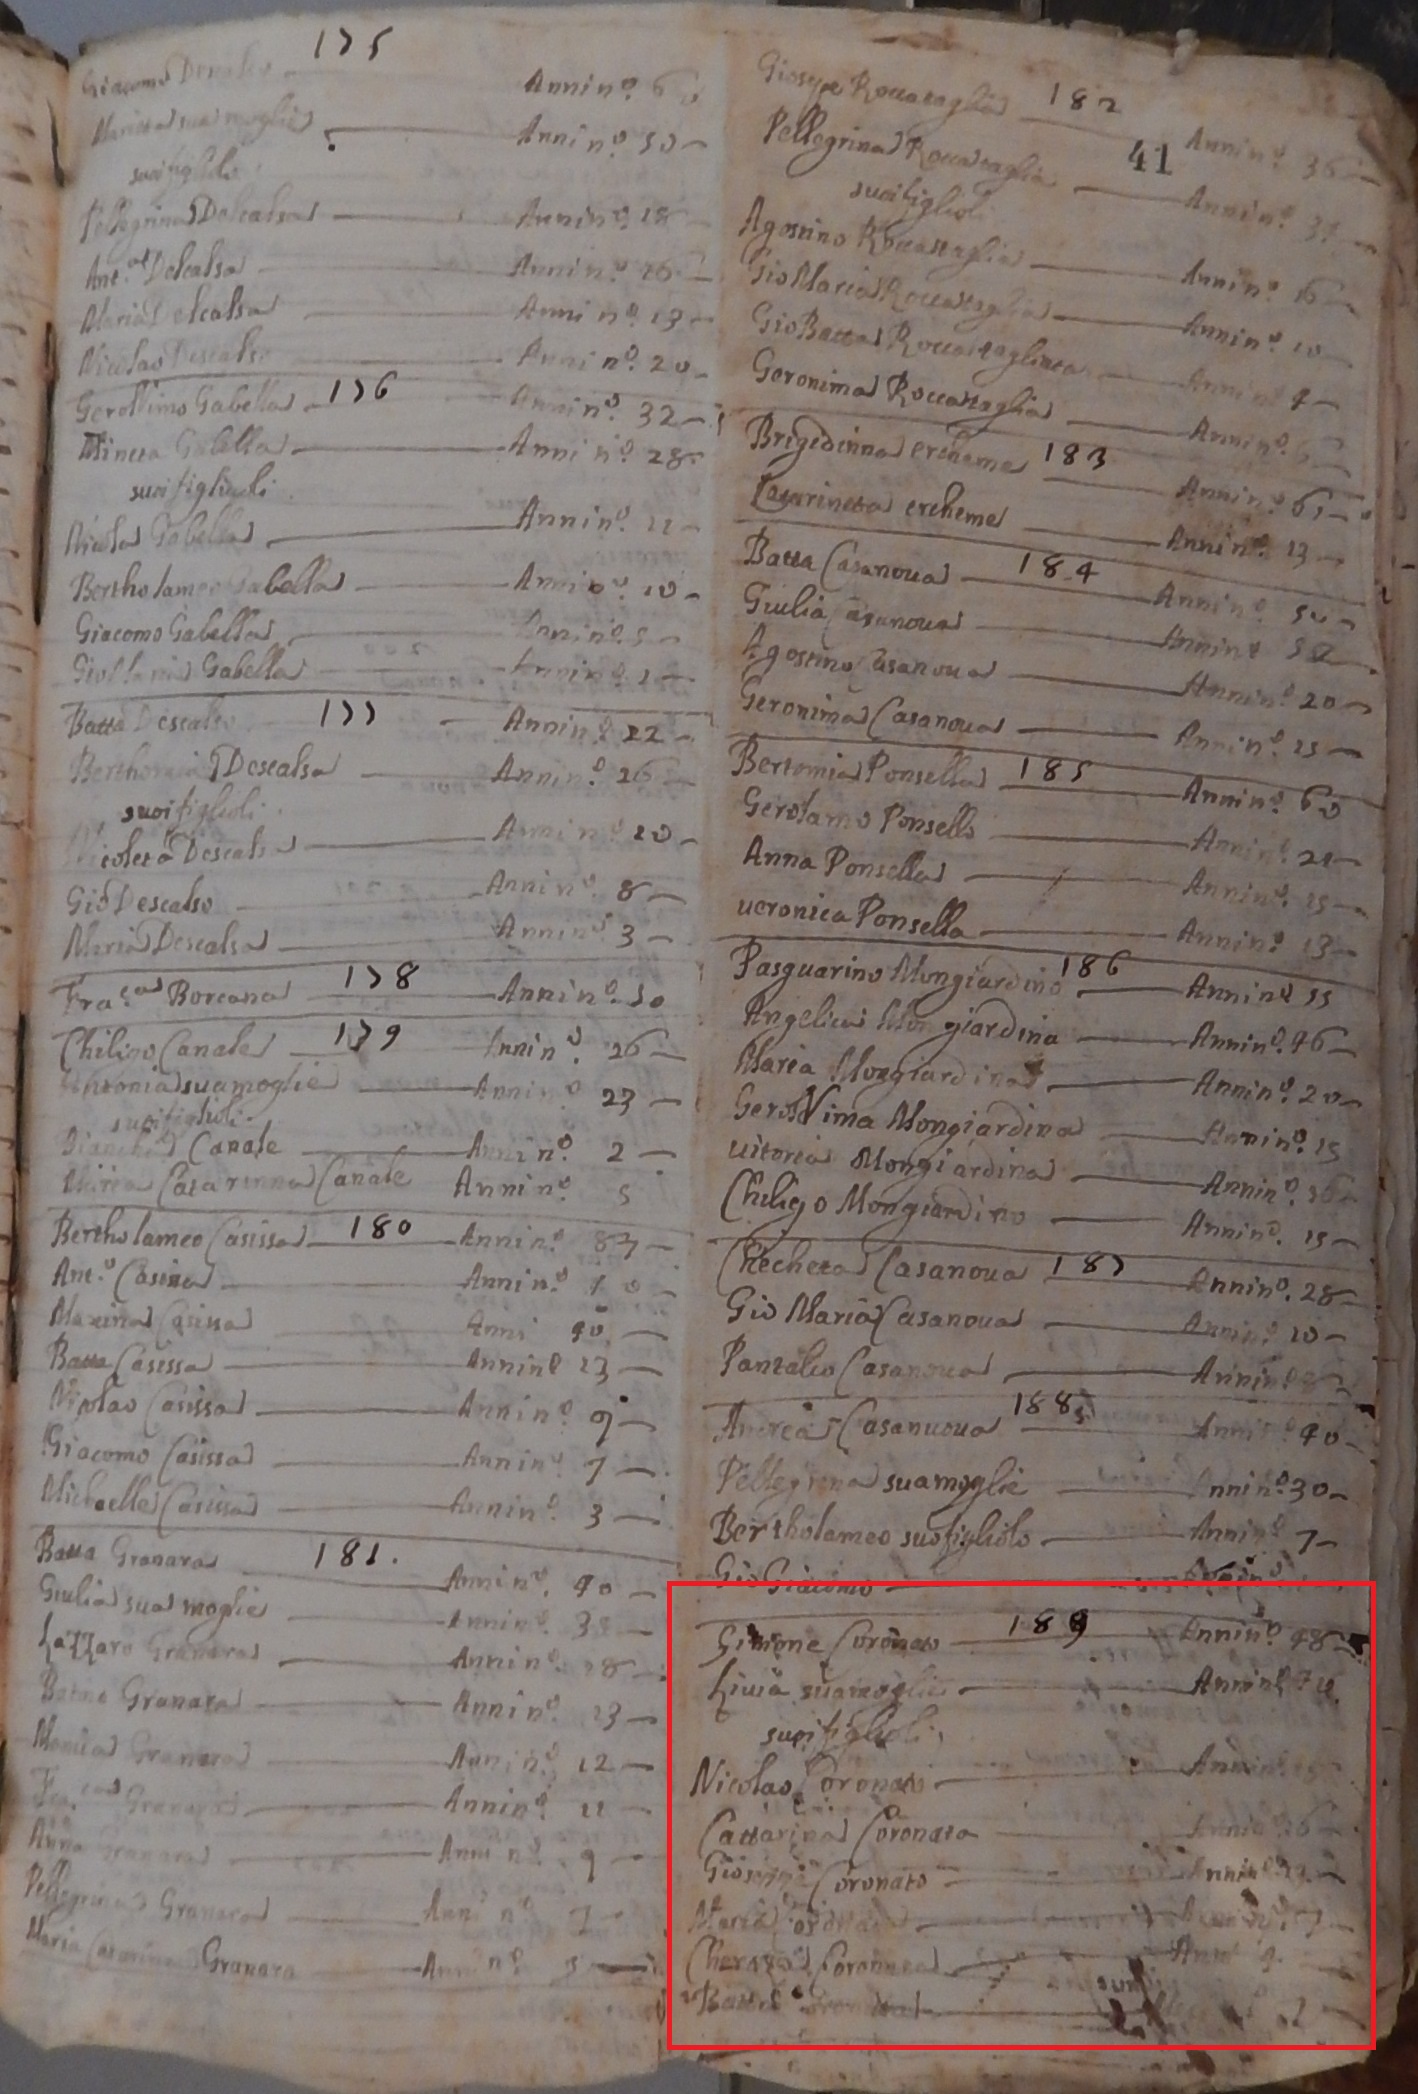 175
Giacomo Descalso Anni nº. 60
Marietta sua moglie Anni nº. 50
suoi figlioli
Pellegrina Delcalsa Anni nº. 18
Ant.ª Delcalsa Anni nº. 16
Maria Delcalsa Anni nº. 13
Nicolao Descalso Anni nº. 20
Gerollimo Gabella 176 Anni nº. 32
Mineta Gabella Anni nº. 28
suoi figliuoli
Nicola Gabella Anni nº. 11
Bertholameo Gabella Anni nº. 10
Giacomo Gabella Anni nº. 5
Gabella Anni nº.
Batta Descalso 177 Anni nº. 22
Descalsa Anni nº. 26
suoi figlioli
Nicoleta Descalsa Anni nº. 10
Gio Descalso Anni nº. 8
Maria Descalsa Anni nº. 3
Fra.ca Boreana 178 Anni nº. 50
Chilipo Canale 179 Anni nº. 26
Antonia sua moglie Anni nº. 23
suoi figlioli
Canale Anni nº. 2
Maria Catarinna Canale Anni nº. 5
Bertholameo Casissa 180 Anni nº. 87
Ant.º Casissa Anni nº.
Casissa Anni 40
Batta Casissa Anni nº 13
Nicolao Casissa Anni nº. 9
Giacomo Casissa Anni nº. 7
Michaelle Casissa Anni nº. 3
Batta Granara 181. Anni nº. 40
Giulia sua moglie Anni nº. 38
Lazzaro Granara Anni nº. 18
Granara Anni nº. 13
Granara Anni nº. 12
Fra.ca Granara Anni nº. 11
Anna Granara Anni nº. 9
Pellegrina Granara Anni nº. 7
Maria Catarina Granara Anni nº. 5
41
Gioseppe Roccataglia 182 Anni nº. 36
Pellegrina Roccataglia Anni nº.
suoi figlioli
Agostino Roccataglia Anni nº. 16
Gio Maria Roccataglia Anni nº. 10
Gio Batta Roccatagliata Anni nº. 4
Geronima Roccataglia Anni nº.
Brigidinna ercheme 183 Anni nº. 61
Catarineta ercheme Anni nº. 13
Batta Casanova 184 Anni nº. 50
Giulia Casanova Anni nº
Agostino Casanova Anni nº. 20
Geronima Casanova Anni nº. 15
Bertomia Ponsella 185 Anni nº. 60
Gerolamo Ponsello Anni nº. 21
Anna Ponsella Anni nº. 15
veronica Ponsella Anni nº. 13
Pasguarino Mongiardino 186 Anni nº 55
Angelica Mongiardina Anni nº. 46
Maria Mongiardina Anni nº. 20
Gerollima Mongiardina Anni nº. 15
vitoria Mongiardina Anni nº. 16
Chilipo Mongiardino Anni nº. 15
Checheta Casanova 187 Anni nº. 28
Gio Maria Casanova Anni nº. 10
Pantaleo Casanova Anni nº. 8
Andrea Casanuova 188 Anni nº. 40
Pellegrina sua moglie Anni nº. 30
Bertholameo suo figliolo Anni nº. 7
Gio Giacomo
Simone Coronato 189 Anni nº. 48
Livia sua moglie Anni nº
suoi figlioli
Nicolao Coronato Anni nº.
Cattarina Coronata Anni nº. 16
Gioseppe Coronato Anni nº.
Maria Coronata Anni nº. 7
Coronata Anni 4
Batta Coronata 2